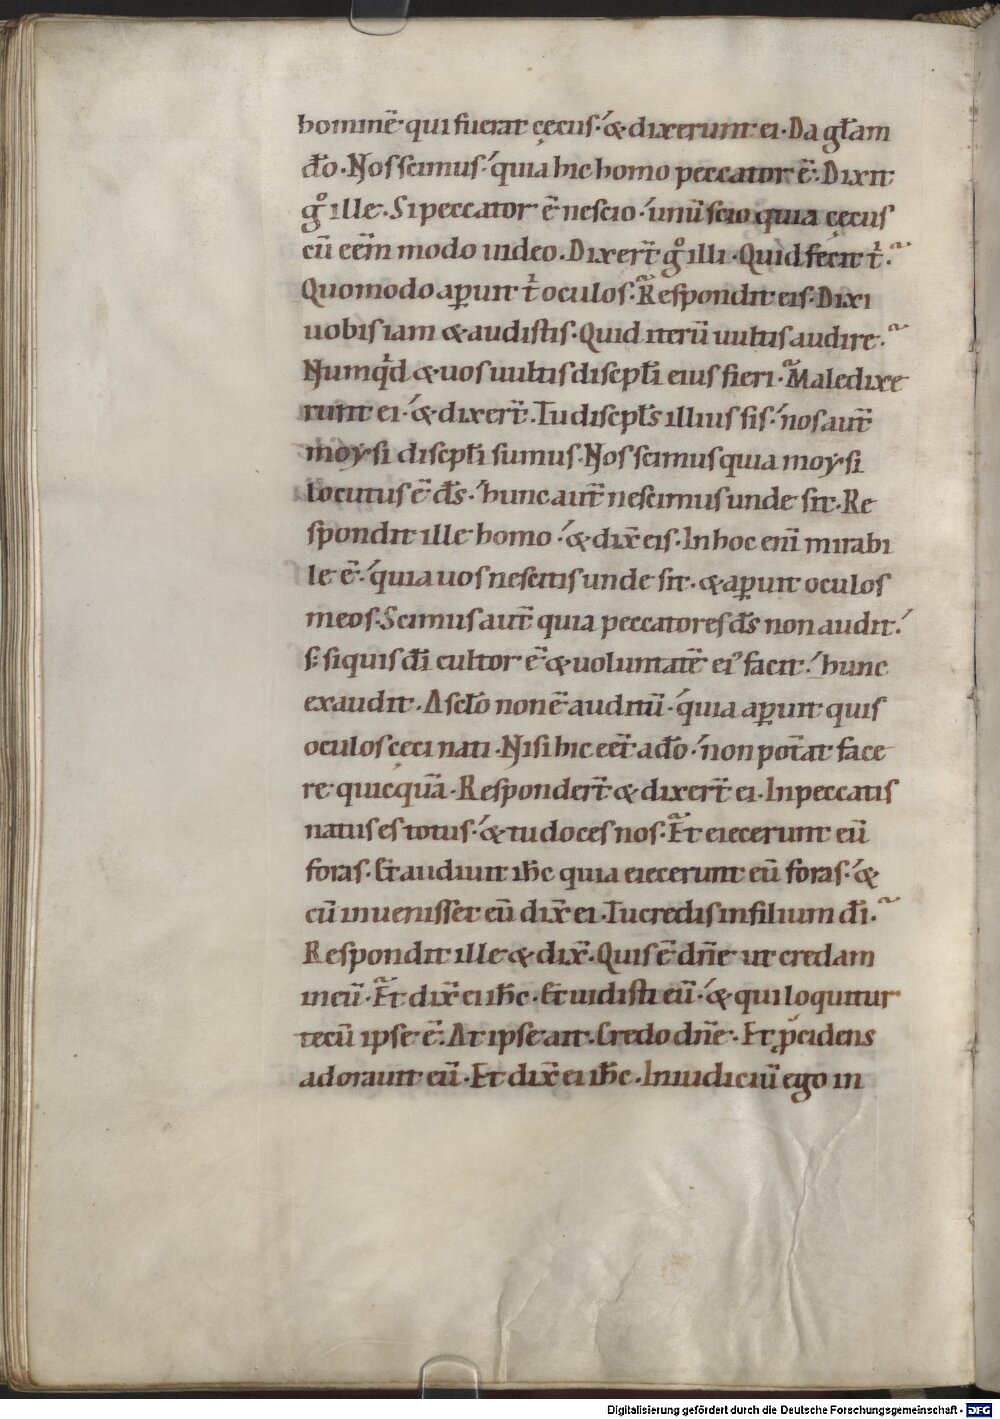 hominē qui fuerat cęcus· & dixerunt ei· Da gl̄am
dō· Nos scimus· quia hic homo peccator ē· Dixit
gͦ ille· Si peccator ē nescio· unū scio quia cęcus
cū eēm modo uideo· Dixer̄t gͦ illi· Quid fecit tⁱ·
Quomodo aꝑuit tⁱ oculos· Respondit eis· Dixi
uobis iam & audistis· Quid iterū uultis audire·
Numqⁱd & uos uultis discipl̄i eius fieri· Maledixe
runt ei· & dixer̄t· Tu discipl̄s illius sis· nos aut̄
moysi discipl̄i sumus· Nos scimus quia moysi
locutus ē d̄s· hunc aut̄ nescimus unde sit· Re
spondit ille homo· & dix̄ eis· In hoc enī mirabi
le ē· quia uos nescitis unde sit· & aꝑuit oculos
meos· Scimus aut̄ quia peccatores d̄s non audit·
s; siquis dī cultor ē & uoluntatē eiꝰ facit· hunc
exaudit· A sclō non ē auditū· quia aꝑuit quis
oculos cęci nati· Nisi hic eēt a dō· non pot̄at face
re quicquā· Responder̄t & dixer̄t ei· In peccatis
natus es totus· & tu doces nos· Et eiecerunt eū
foras· Et audiuit ih̄c quia eiecerunt eū foras· &
cū inuenisset eū dix̄ ei· Tu credis in filium dī·
Respondit ille & dix̄· Quis ē dn̄e ut credam
in eū· Et dix̄ ei ih̄c· Et uidisti eū· & qui loquitur
tecū ipse ē· At ipse ait· Credo dn̄e· Et p̨cidens
adorauit eū· Et dix̄ ei ih̄c· In iudiciū ego in
Digitalisierung gefördert durch die Deutsche Forschungsgemeinschaft - DFG